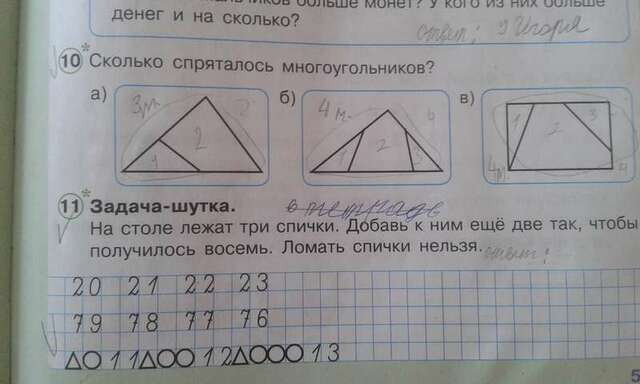 мальчиков больше монет? У кого из них больше
денег и на сколько? ответ: У Игоря
10* Сколько спряталось многоугольников?
а) б) в)
3м. 4 м.
1 2 1 2 3 1 2 3
4м. 4
11* Задача-шутка. в тетрадь
На столе лежат три спички. Добавь к ним ещё две так, чтобы
получилось восемь. Ломать спички нельзя. ответ:
20 21 22 23
79 78 77 76
△○11△○○12△○○○13
5